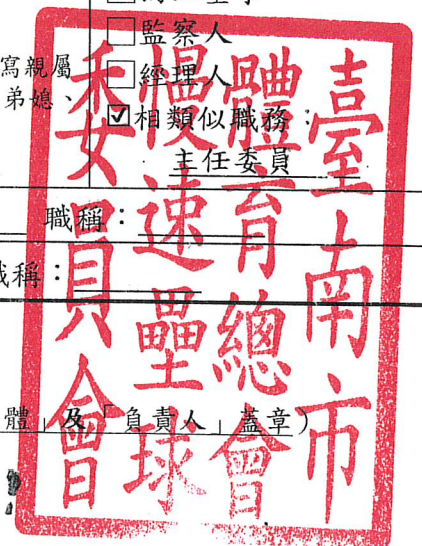 □監察人
寫親屬
弟媳、
□經理人
☑相類似職務：
主任委員
職稱：
職稱：
體」及「負責人」蓋章）
臺南市
體育總會
慢速壘球
委員會